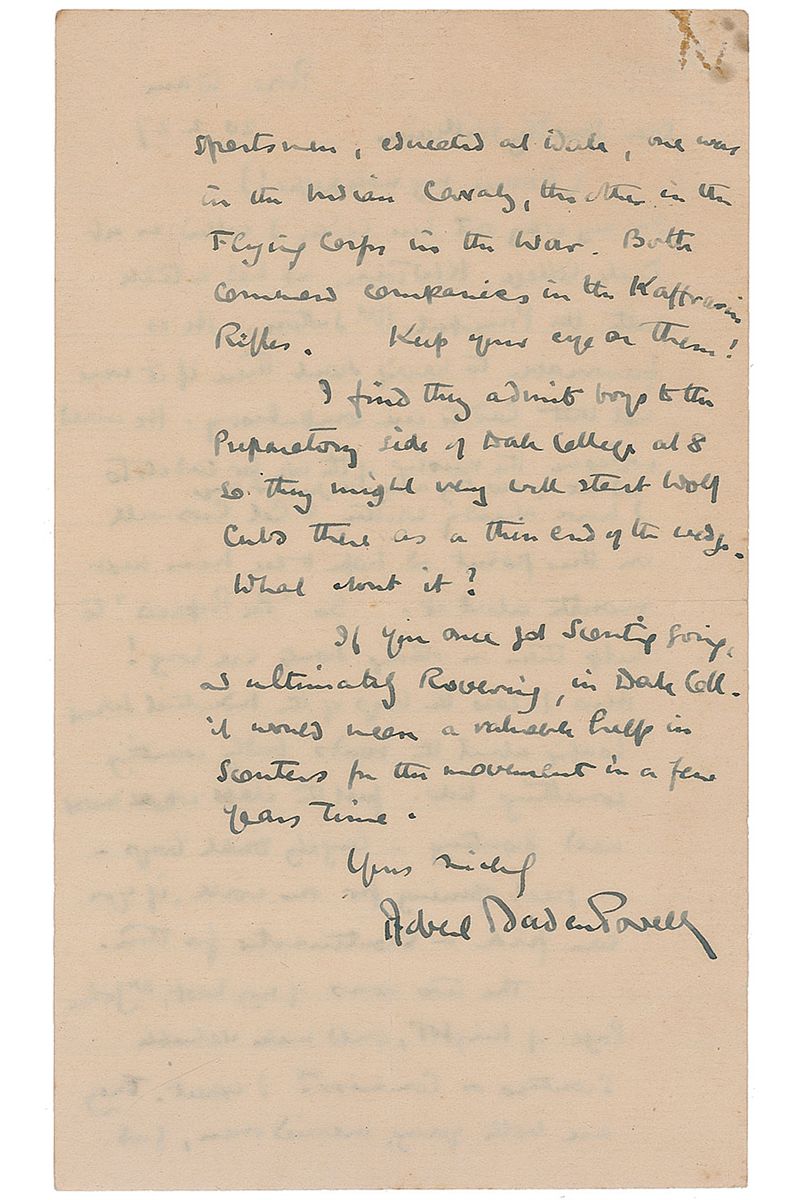 sportsmen, educated at Dale, one was
in the Indian Cavalry, the other in the
Flying Corps in the War. Both
command companies in the Kaffrarian
Rifles. Keep your eye on them!
I find they admit boys to the
Preparatory side of Dale College at 8
So they might very well start Wolf
Cubs there as a thin end of the wedge.
What about it?
If you once got Scouting going,
and ultimately Rovering, in Dale Coll.
it would mean a valuable help in
Scouters for the movement in a few
years time.
Yours sincerely
Robert Baden Powell